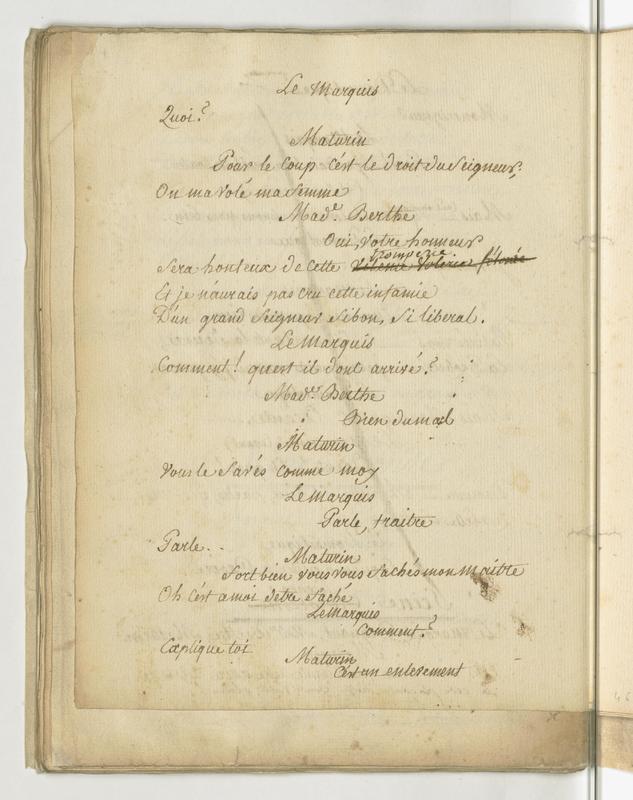 Le Marquis
Quoi?
Maturin
Pour le coup c'est le droit du Seigneur,
On ma volé ma femme
Made. Berthe
Oui, votre honneur
tromperie
Sera honteux de cette
Et je n'aurais pas cru cette infamie
D'un grand Seigneur Si bon, Si liberal.
Le Marquis
Comment! qu'est il dont arrivé?
Made. Berthe
Bien du mal
Maturin
Vous le Savés comme moy
Le Marquis
Parle, traitre
Parle..
Maturin
fort bien vous vous fachés mon maitre
Oh c'est a moi d'etre faché
Le Marquis
Comment?
Explique toi
Maturin
C'est un enlevement